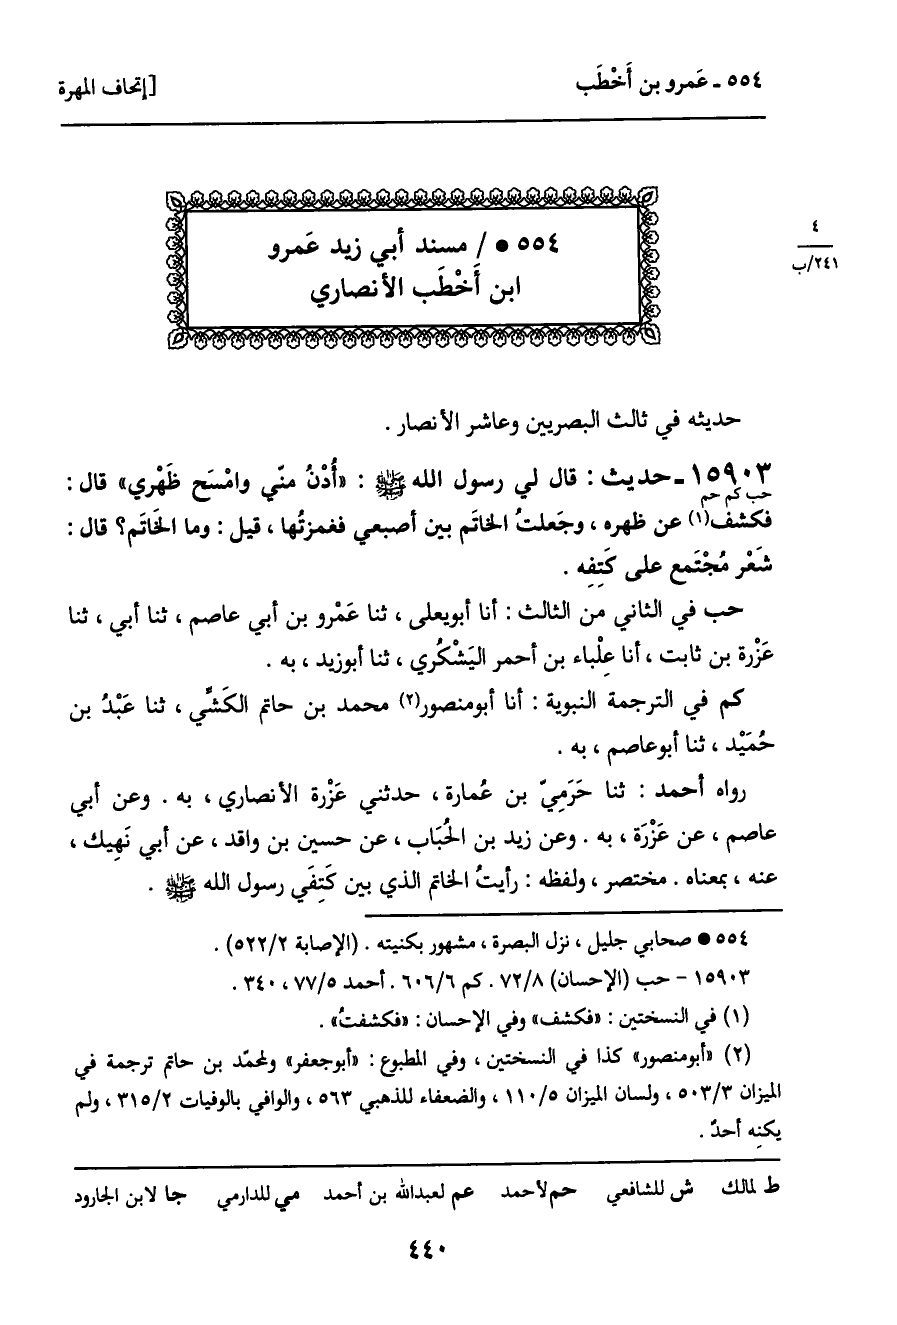 ٥٥٤ ـ عَمرو بن أَخْطَب
[إتحاف المهرة
٤
٢٤١/ب
٥٥٤ ● / مسند أبي زيد عَمرو
ابن أَخْطَب الأنصاري
حديثه في ثالث البصريين وعاشر الأنصار .
١٥٩٠٣ ـ حديث : قال لي رسول الله ﷺ : «أُدْنُ منّي وامْسَح ظَهْري» قال :
حب كم حم
فكشف(١) عن ظهره ، وجَعلتُ الخاتَم بين أصبعي فغمزتُها ، قيل : وما الخَاتَم؟ قال :
شَعْر مُجْتَمع على كَتِفِه .
حب في الثاني من الثالث : أنا أبويعلى ، ثنا عَمْرو بن أبي عاصم ، ثنا أبي ، ثنا
عَزْرة بن ثابت ، أنا عِلْباء بن أحمر اليَشْكُري ، ثنا أبوزيد ، به .
كم في الترجمة النبوية : أنا أبومنصور(٢) محمد بن حاتم الكَشِّي ، ثنا عَبْدُ بن
حُمَيْد ، ثنا أبوعاصم ، به .
رواه أحمد : ثنا حَرَمِيّ بن عُمارة ، حدثني عَزْرة الأنصاري ، به . وعن أبي
عاصم ، عن عَزْرَة ، به . وعن زيد بن الحُبَاب ، عن حسين بن واقد ، عن أبي نَهِيك ،
عنه ، بمعناه . مختصر ، ولفظه : رأيتُ الخاتم الذي بين كَتِفَي رسول الله ﷺ .
٥٥٤ ● صحابي جليل ، نزل البصرة ، مشهور بكنيته . (الإصابة ٥٢٢/٢) .
١٥٩٠٣ - حب (الإحسان) ٧٢/٨ . كم ٦٠٦/٦ . أحمد ٧٧/٥ ، ٣٤٠ .
(١) في النسختين : «فكشف» وفي الإحسان : «فكشفتُ» .
(٢) «أبومنصور» كذا في النسختين ، وفي المطبوع : «أبوجعفر» ولمحمّد بن حاتم ترجمة في
الميزان ٥٠٣/٣ ، ولسان الميزان ١١٠/٥ ، والضعفاء للذهبي ٥٦٣ ، والوافي بالوفيات ٣١٥/٢ ، ولم
يكنِه أحدٌ .
ط لمالك ش للشافعي حم لأحمد عم لعبدالله بن أحمد مي للدارمي جا لابن الجارود
٤٤٠